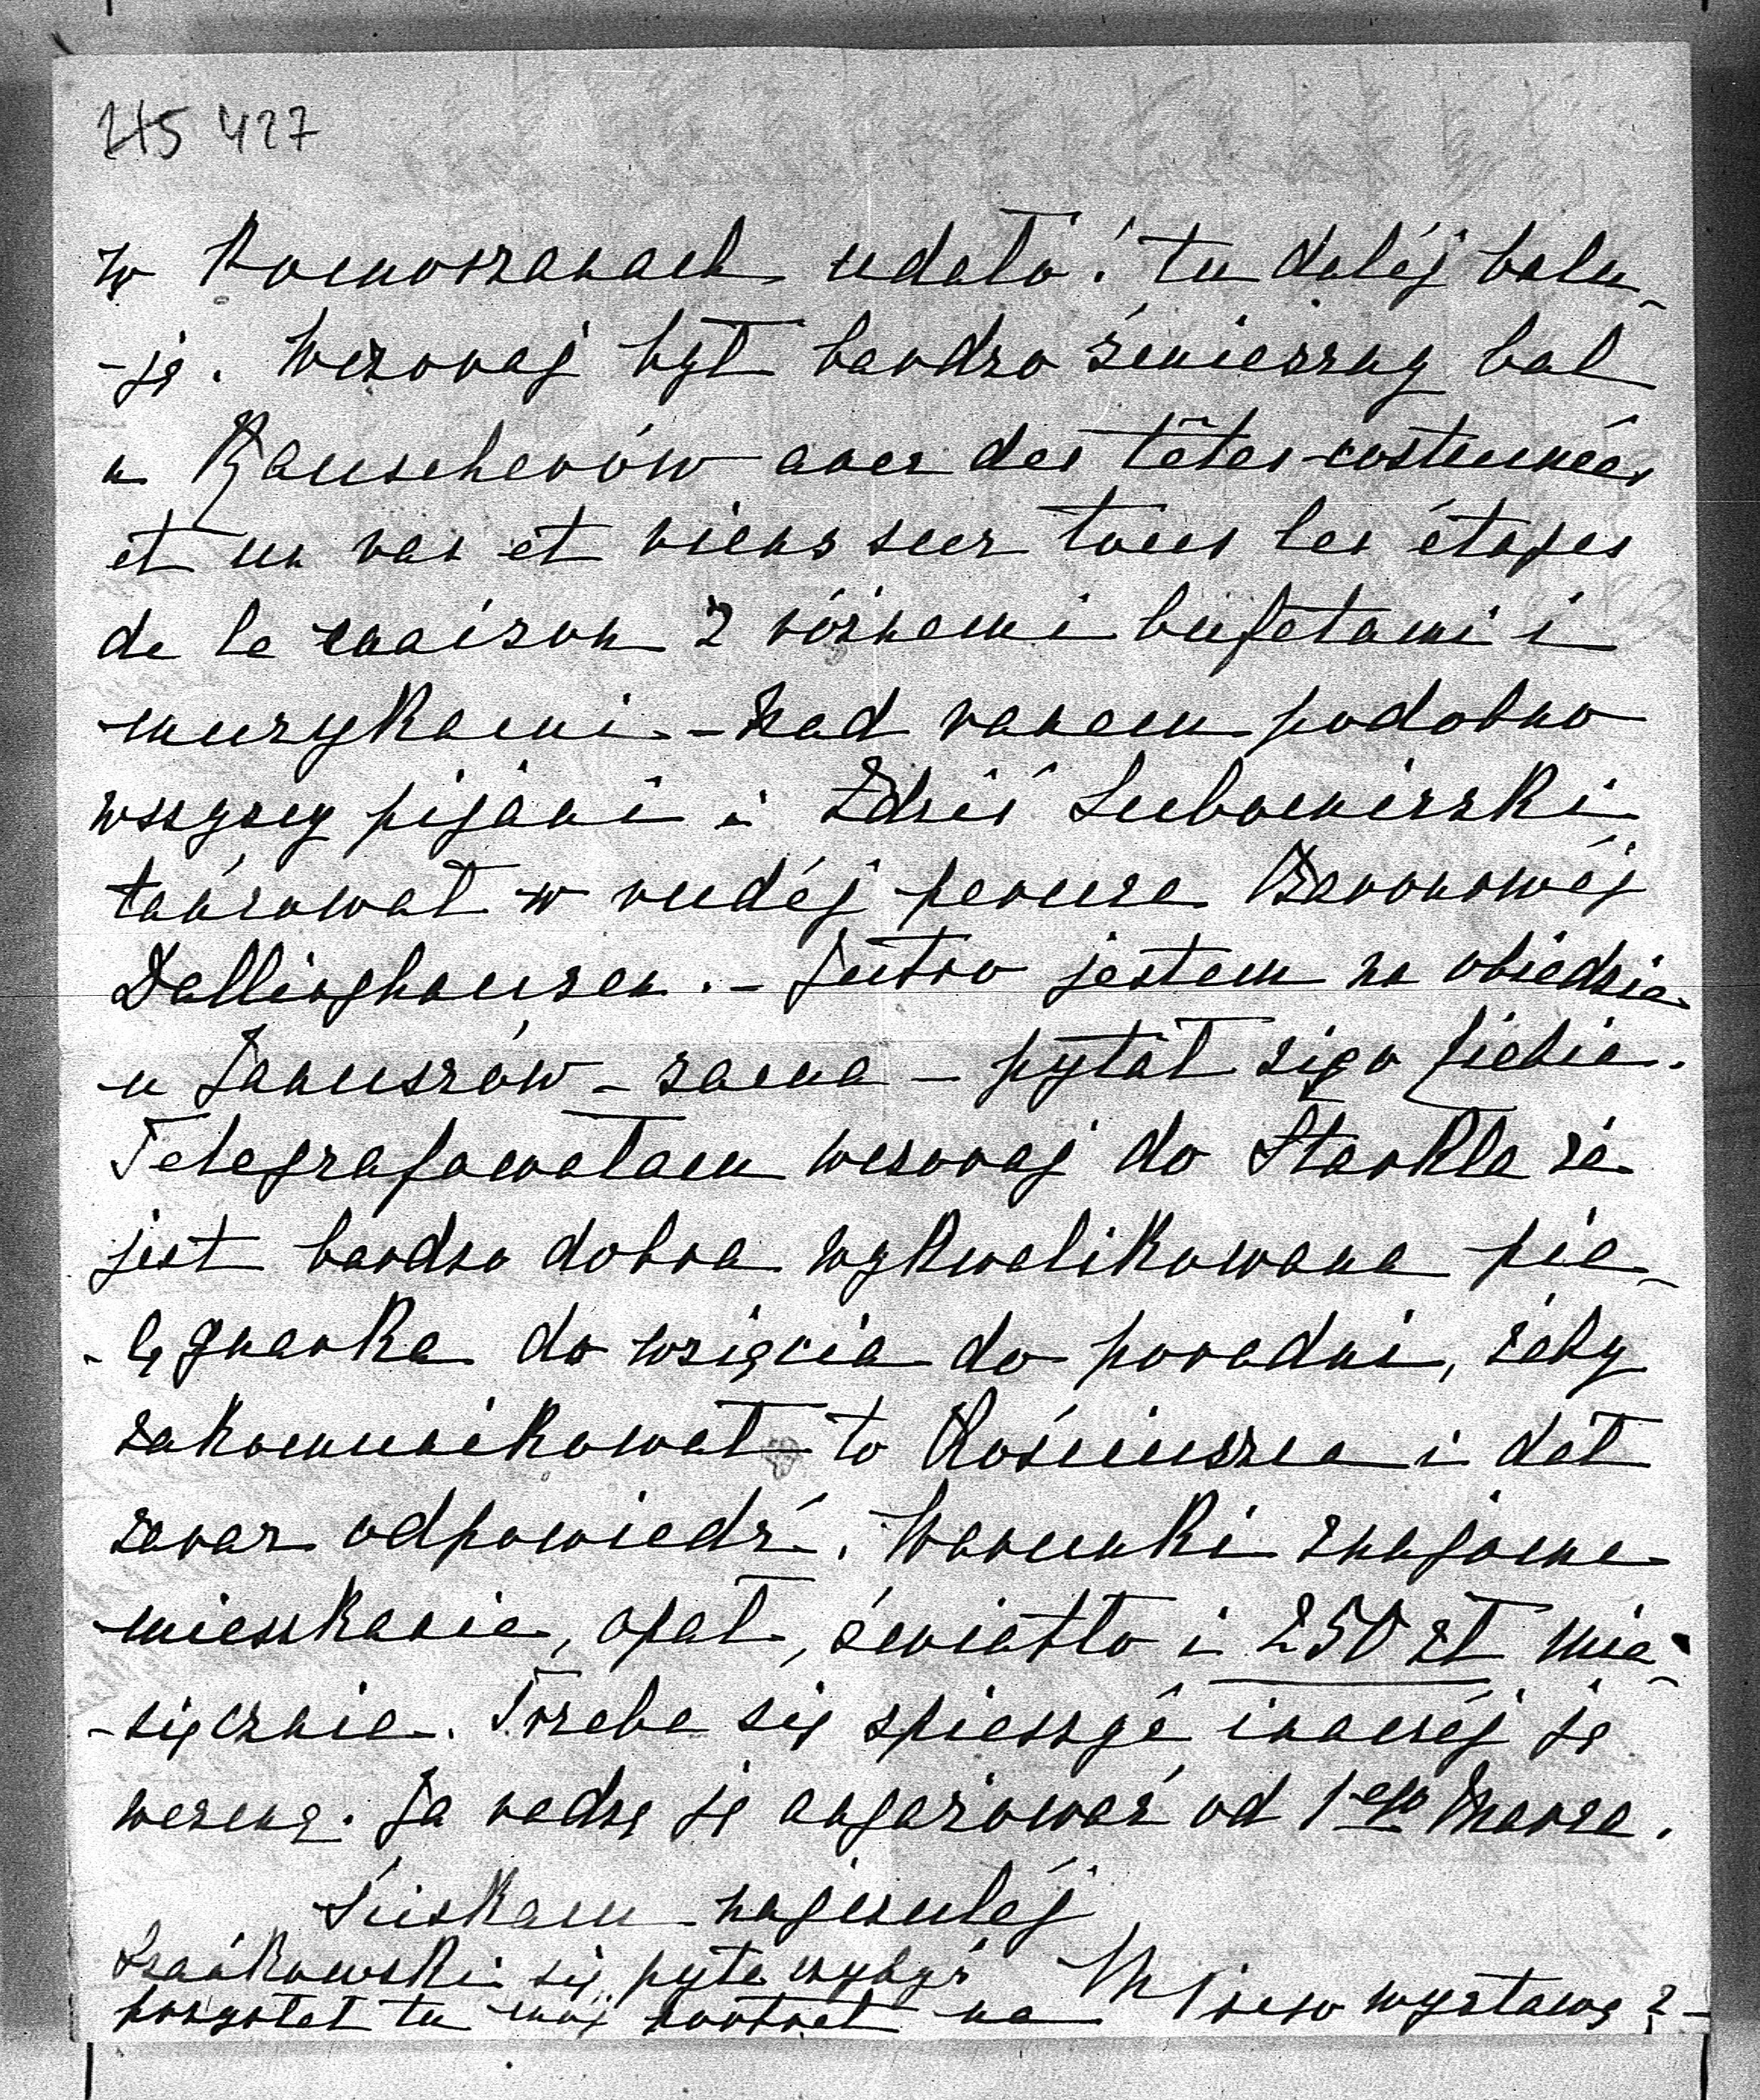 245 427
w Komoszanach udało! tu dalej balu-
-ją. Wczoraj był bardzo śmieszny bal
u Rauscherów avec des têtes costumées
et un vas et viens sur tous les étages
de la maison z różnemi bufetami i
muzykami - Nad ranem podobno
wszyscy pijani i Zdziś Lubomirski
tańcował w rudéj peruce Baronowéj
Dellinghausen. - Jutro jestem na obiedzie
u Januszów - sama - pytał się o Ciebie.
Telegrafowałam wczoraj do Starkla że
jest bardzo dobra wykwalikowana pie-
-lęgnarka do wzięcia do poradni, żeby
zakomunikował to Kościuszce i dał
zaraz odpowiedź. Warunki znajome
mieszkanie, opał, światło i 250 zł mie-
-sięcznie. Trzeba się spieszyć inaczéj ją
wezmą. Ja radzę ją angażować od 1ego Marca.
Ściskam najczuléj
się pyta czybyś M
przysłał tu mój portret na wystawę? -